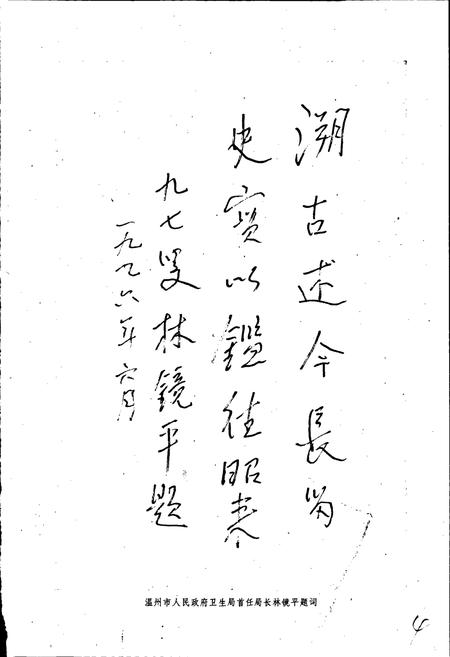 溯古述今長留
史實以鑑往昭来
九七叟林镜平题
一九九六年六月
温州市人民政府卫生局首任局长林镜平题词
4